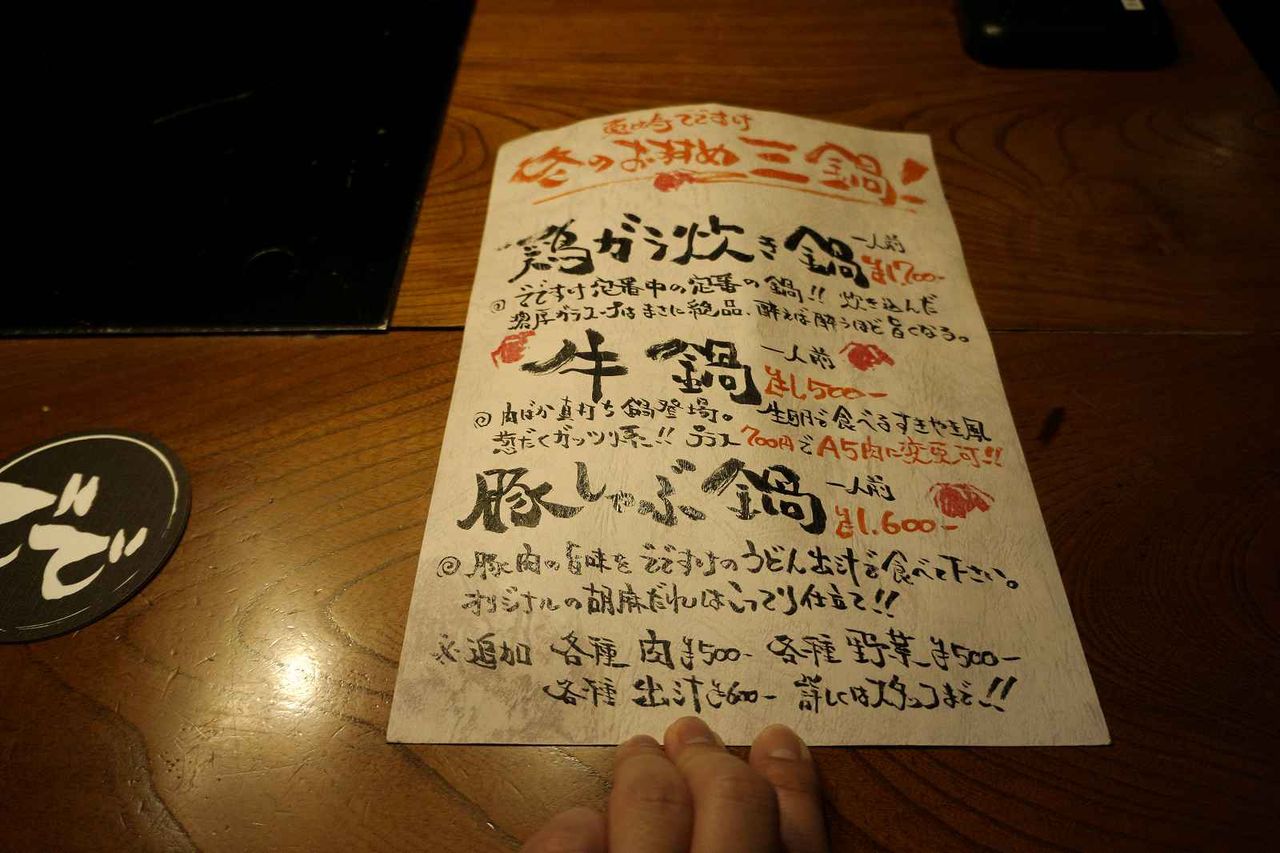 恵比寿でですけ
冬のおすすめ三鍋!
鶏ガラ炊き鍋 一人前 ¥1,700-
◎ でですけ定番中の定番の鍋!! 炊き込んだ
濃厚ガラスープはまさに絶品、酔えば酔うほど旨くなる。
牛鍋 一人前 ¥1,500-
◎ 肉ばか真打ち鍋登場。生卵で食べるすきやき風
葱だくガッツリ系!! プラス700円でA5肉に変更可!!
豚しゃぶ鍋 一人前 ¥1.600-
◎ 豚肉の旨味をでですけのうどん出汁で食べて下さい。
オリジナルの胡麻だれはこってり仕立て!!
※追加 各種 肉¥500- 各種 野菜¥500-
各種 出汁¥600- 詳しくはスタッフまで!!